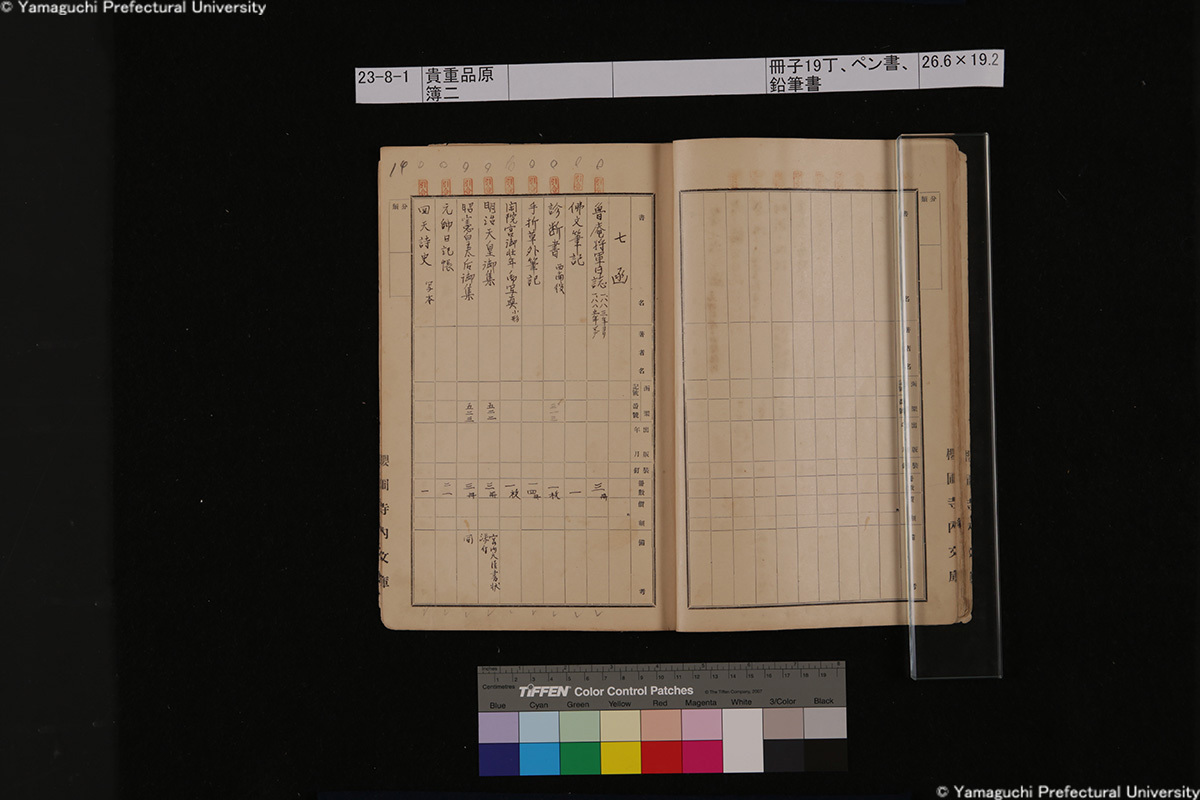 © Yamaguchi Prefectural University
23-8-1
貴重品原
簿二
冊子19丁、ペン書、
鉛筆書
26.6×19.2
14
書名
著者名
函架
記號番號
出版
年月
装釘
冊数
價額
備考
七函
魯庵将軍日誌
三冊
佛文筆記
一
診断書 西南役
一枚
手折草外筆記
一四冊
閑院宮御壮年御写真 小形
一枚
明治天皇御集
五二二
三冊
宮内大臣書状
添付
昭憲皇太后御集
五二三
三冊
同
元帥日記帳
二一
回天詩史 写本
一
分類
櫻圃寺内文庫
分類
櫻圃寺内文庫
TIFFEN Color Control Patches
© The Tiffen Company, 2007
Centimetres
Blue Cyan Green Yellow Red Magenta White 3/Color Black
© Yamaguchi Prefectural University